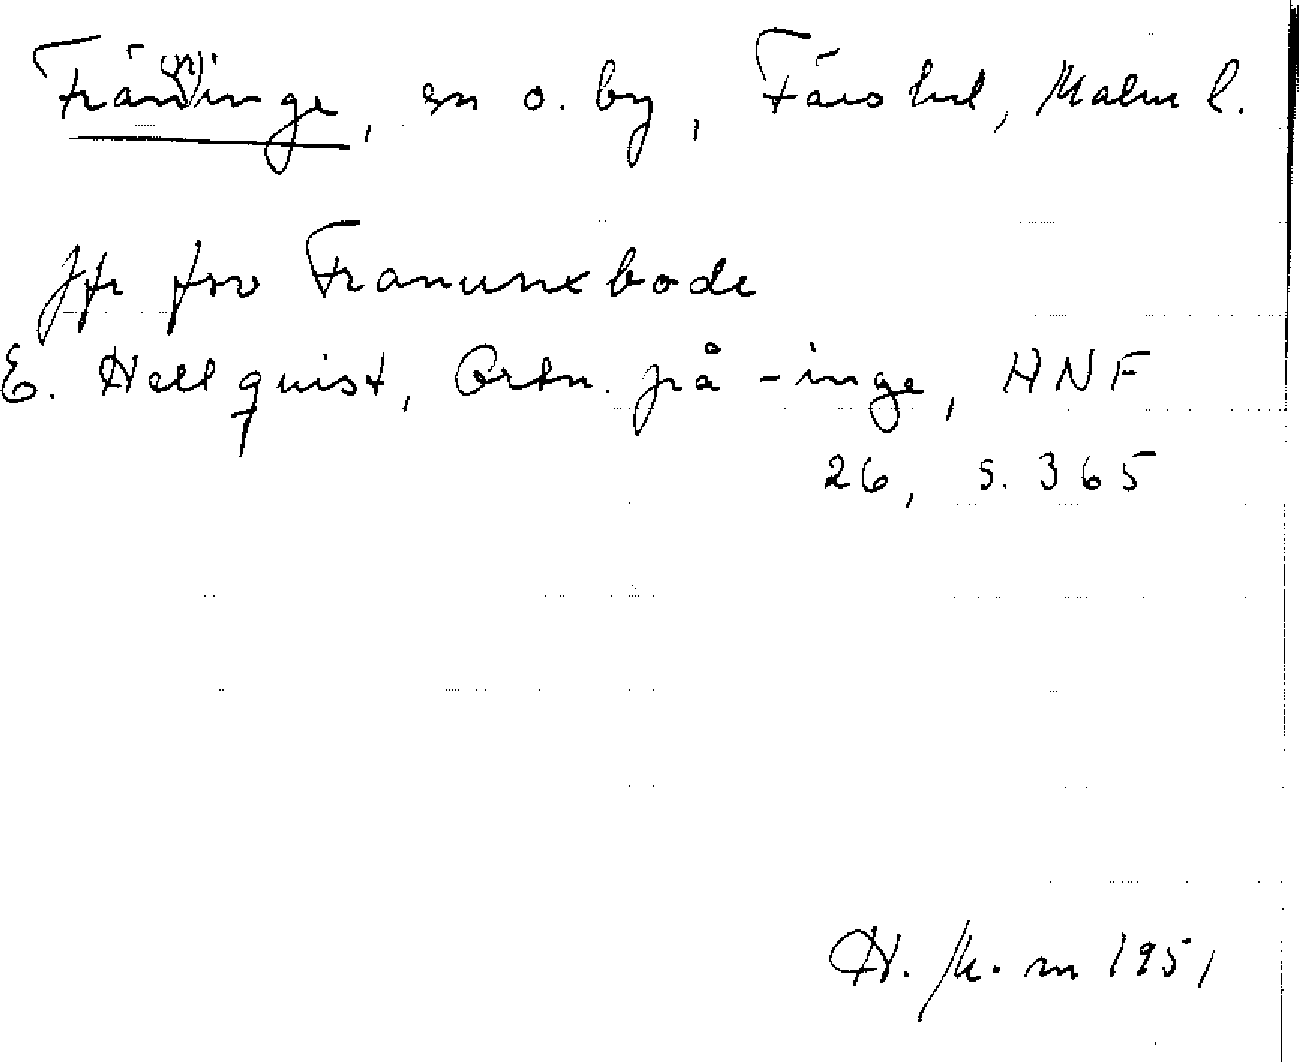 Frän(n)inge, sn o. by, Färs hd, Malm l.
Jfr fsv Franunxbode
E. Hellquist, Ortn. på -inge, HNF
26, s. 365
1951